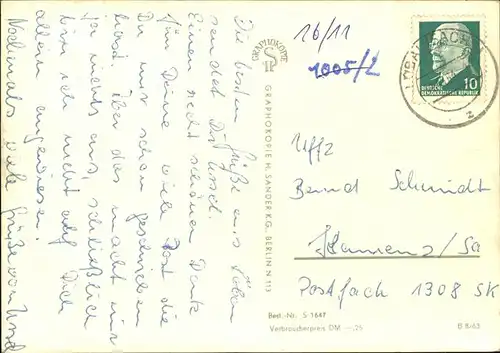 Die besten Grüße aus Löbau
sendet Dir Ursel.
Einen recht schönen Dank
für Deine viele Post die
Du mir schon geschrieben
hast. Aber das macht mir
ja nichts aus, schließlich
bin ich nicht auf Dich
allein angewiesen.
Nochmals viele Grüße von Ursel
GRAPHOKOPIE
GRAPHOKOPIE H. SANDER KG., BERLIN N 113
16/11
1005/2
DEUTSCHE
DEMOKRATISCHE REPUBLIK 10
Uffz
Bernd Schmidt
Kamenz/Sa
Postfach 1308 SK
Best.-Nr. S 1647
Verbraucherpreis DM —,25
B 8/63